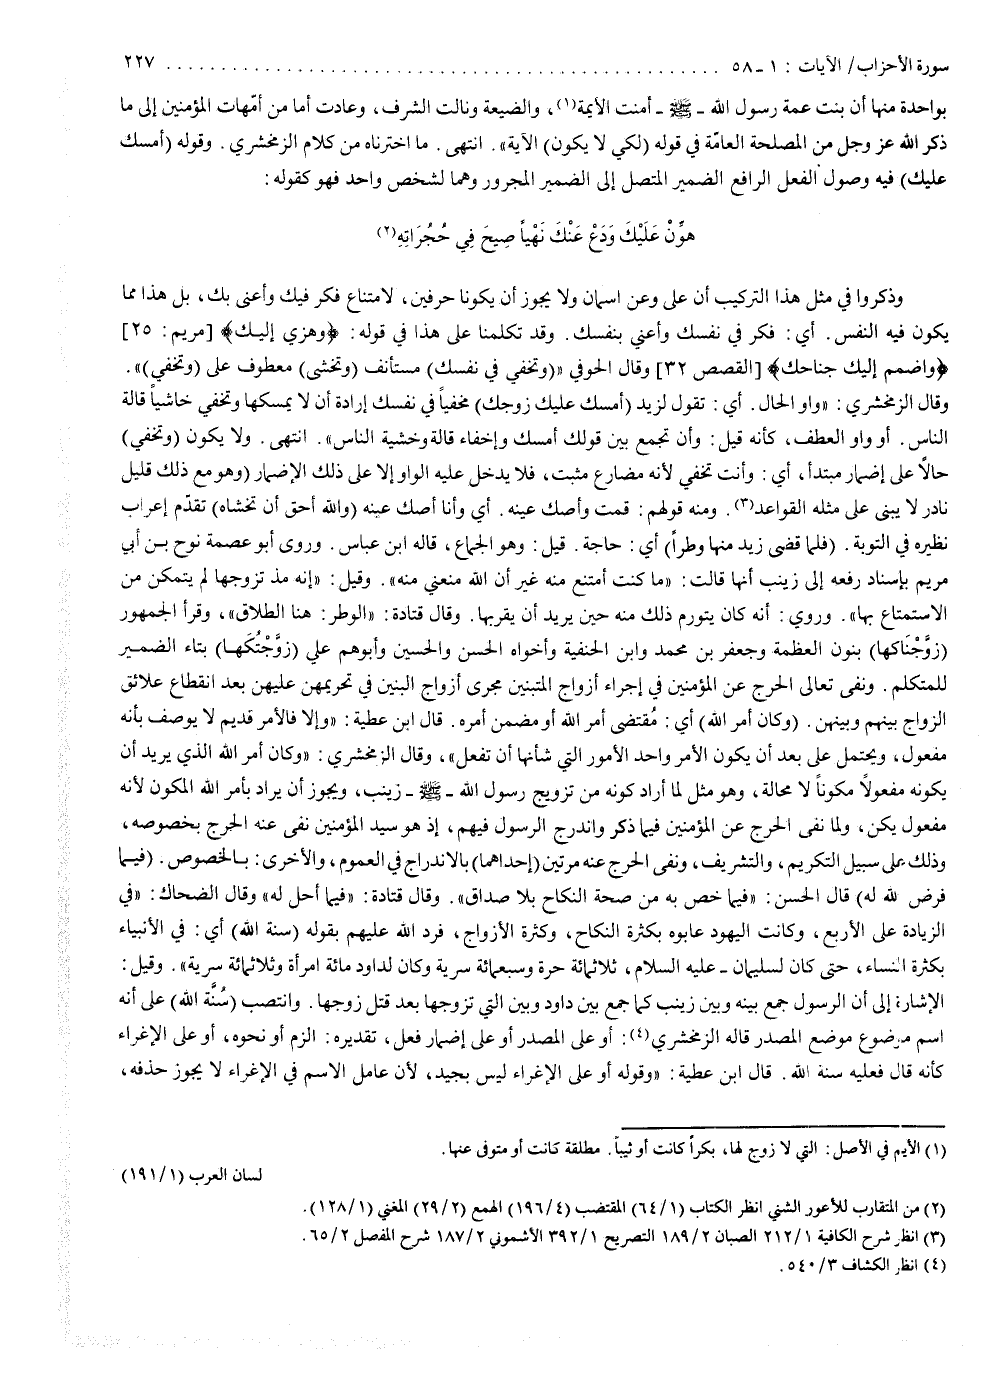 سورة الأحزاب/ الآيات : ١ ـ ٥٨ ................................................ ٢٢٧
بواحدة منها أن بنت عمة رسول الله ـ ﷺ ـ أمنت الأيمة(١)، والضيعة ونالت الشرف، وعادت أما من أمّهات المؤمنين إلى ما
ذكر الله عز وجل من المصلحة العامّة في قوله (لكي لا يكون) الآية». انتهى. ما اخترناه من كلام الزمخشري. وقوله (أمسك
عليك) فيه وصول الفعل الرافع الضمير المتصل إلى الضمير المجرور وهما لشخص واحد فهو كقوله:
هوِّنْ عَلَيْكَ وَدَعْ عَنْكَ نَهْياً صِيحَ فِي حُجُرَاتِهِ(٢)
وذكروا في مثل هذا التركيب أن على وعن اسمان ولا يجوز أن يكونا حرفين، لامتناع فكر فيك وأعنى بك، بل هذا مما
يكون فيه النفس. أي: فكر في نفسك وأعني بنفسك. وقد تكلمنا على هذا في قوله: ﴿وهزي إليك﴾ [مريم: ٢٥]
﴿واضمم إليك جناحك﴾ [القصص ٣٢] وقال الحوفي «(وتخفي في نفسك) مستأنف (وتخشى) معطوف على (وتخفي)».
وقال الزمخشري: «واو الحال. أي: تقول لزيد (أمسك عليك زوجك) مخفياً في نفسك إرادة أن لا يمسكها وتخفي خاشياً قالة
الناس. أو واو العطف، كأنه قيل: وأن تجمع بين قولك أمسك وإخفاء قالة وخشية الناس». انتهى. ولا يكون (وتخفي)
حالاً على إضمار مبتدأ، أي: وأنت تخفي لأنه مضارع مثبت، فلا يدخل عليه الواو إلا على ذلك الإضمار (وهو مع ذلك قليل
نادر لا يبنى على مثله القواعد(٣). ومنه قولهم: قمت وأصك عينه. أي وأنا أصك عينه (والله أحق أن تخشاه) تقدّم إعراب
نظيره في التوبة. (فلما قضى زيد منها وطراً) أي: حاجة. قيل: وهو الجماع، قاله ابن عباس. وروى أبو عصمة نوح بن أبي
مريم بإسناد رفعه إلى زينب أنها قالت: «ما كنت أمتنع منه غير أن الله منعني منه». وقيل: «إنه مذ تزوجها لم يتمكن من
الاستمتاع بها». وروي: أنه كان يتورم ذلك منه حين يريد أن يقربها. وقال قتادة: «الوطر: هنا الطلاق»، وقرأ الجمهور
(زوَّجْنَاكها) بنون العظمة وجعفر بن محمد وابن الحنفية وأخواه الحسن والحسين وأبوهم علي (زوَّجْتُكَها) بتاء الضمير
للمتكلم. ونفى تعالى الحرج عن المؤمنين في إجراء أزواج المتبنين مجرى أزواج البنين في تحريمهن عليهن بعد انقطاع علائق
الزواج بينهم وبينهن. (وكان أمر الله) أي: مُقتضى أمر الله أو مضمن أمره. قال ابن عطية: «وإلا فالأمر قديم لا يوصف بأنه
مفعول، ويحتمل على بعد أن يكون الأمر واحد الأمور التي شأنها أن تفعل»، وقال الزمخشري: «وكان أمر الله الذي يريد أن
يكونه مفعولاً مكوناً لا محالة، وهو مثل لما أراد كونه من تزويج رسول الله ـ ﷺ ـ زينب، ويجوز أن يراد بأمر الله المكون لأنه
مفعول يكن، ولما نفى الحرج عن المؤمنين فيما ذكر واندرج الرسول فيهم، إذ هو سيد المؤمنين نفى عنه الحرج بخصوصه،
وذلك على سبيل التكريم، والتشريف، ونفى الحرج عنه مرتين (إحداهما) بالاندراج في العموم، والأخرى: بالخصوص. (فيما
فرض الله له) قال الحسن: «فيما خص به من صحة النكاح بلا صداق». وقال قتادة: «فيما أحل له» وقال الضحاك: «في
الزيادة على الأربع، وكانت اليهود عابوه بكثرة النكاح، وكثرة الأزواج، فرد الله عليهم بقوله (سنة الله) أي: في الأنبياء
بكثرة النساء، حتى كان لسليمان ـ عليه السلام، ثلاثمائة حرة وسبعمائة سرية وكان لداود مائة امرأة وثلاثمائة سرية». وقيل:
الإشارة إلى أن الرسول جمع بينه وبين زينب كما جمع بين داود وبين التي تزوجها بعد قتل زوجها. وانتصب (سُنَّة الله) على أنه
اسم موضوع موضع المصدر قاله الزمخشري(٤): أو على المصدر أو على إضمار فعل، تقديره: الزم أو نحوه، أو على الإغراء
كأنه قال فعليه سنة الله. قال ابن عطية: «وقوله أو على الإغراء ليس بجيد، لأن عامل الاسم في الإغراء لا يجوز حذفه،
(١) الأيم في الأصل: التي لا زوج لها، بكراً كانت أو ثيباً. مطلقة كانت أو متوفى عنها.
لسان العرب (١٩١/١)
(٢) من المتقارب للأعور الشني انظر الكتاب (٦٤/١) المقتضب (١٩٦/٤) الهمع (٢٩/٢) المغني (١٢٨/١).
(٣) انظر شرح الكافية ٢١٢/١ الصبان ١٨٩/٢ التصريح ٣٩٢/١ الأشموني ١٨٧/٢ شرح المفصل ٦٥/٢.
(٤) انظر الكشاف ٥٤٠/٣.